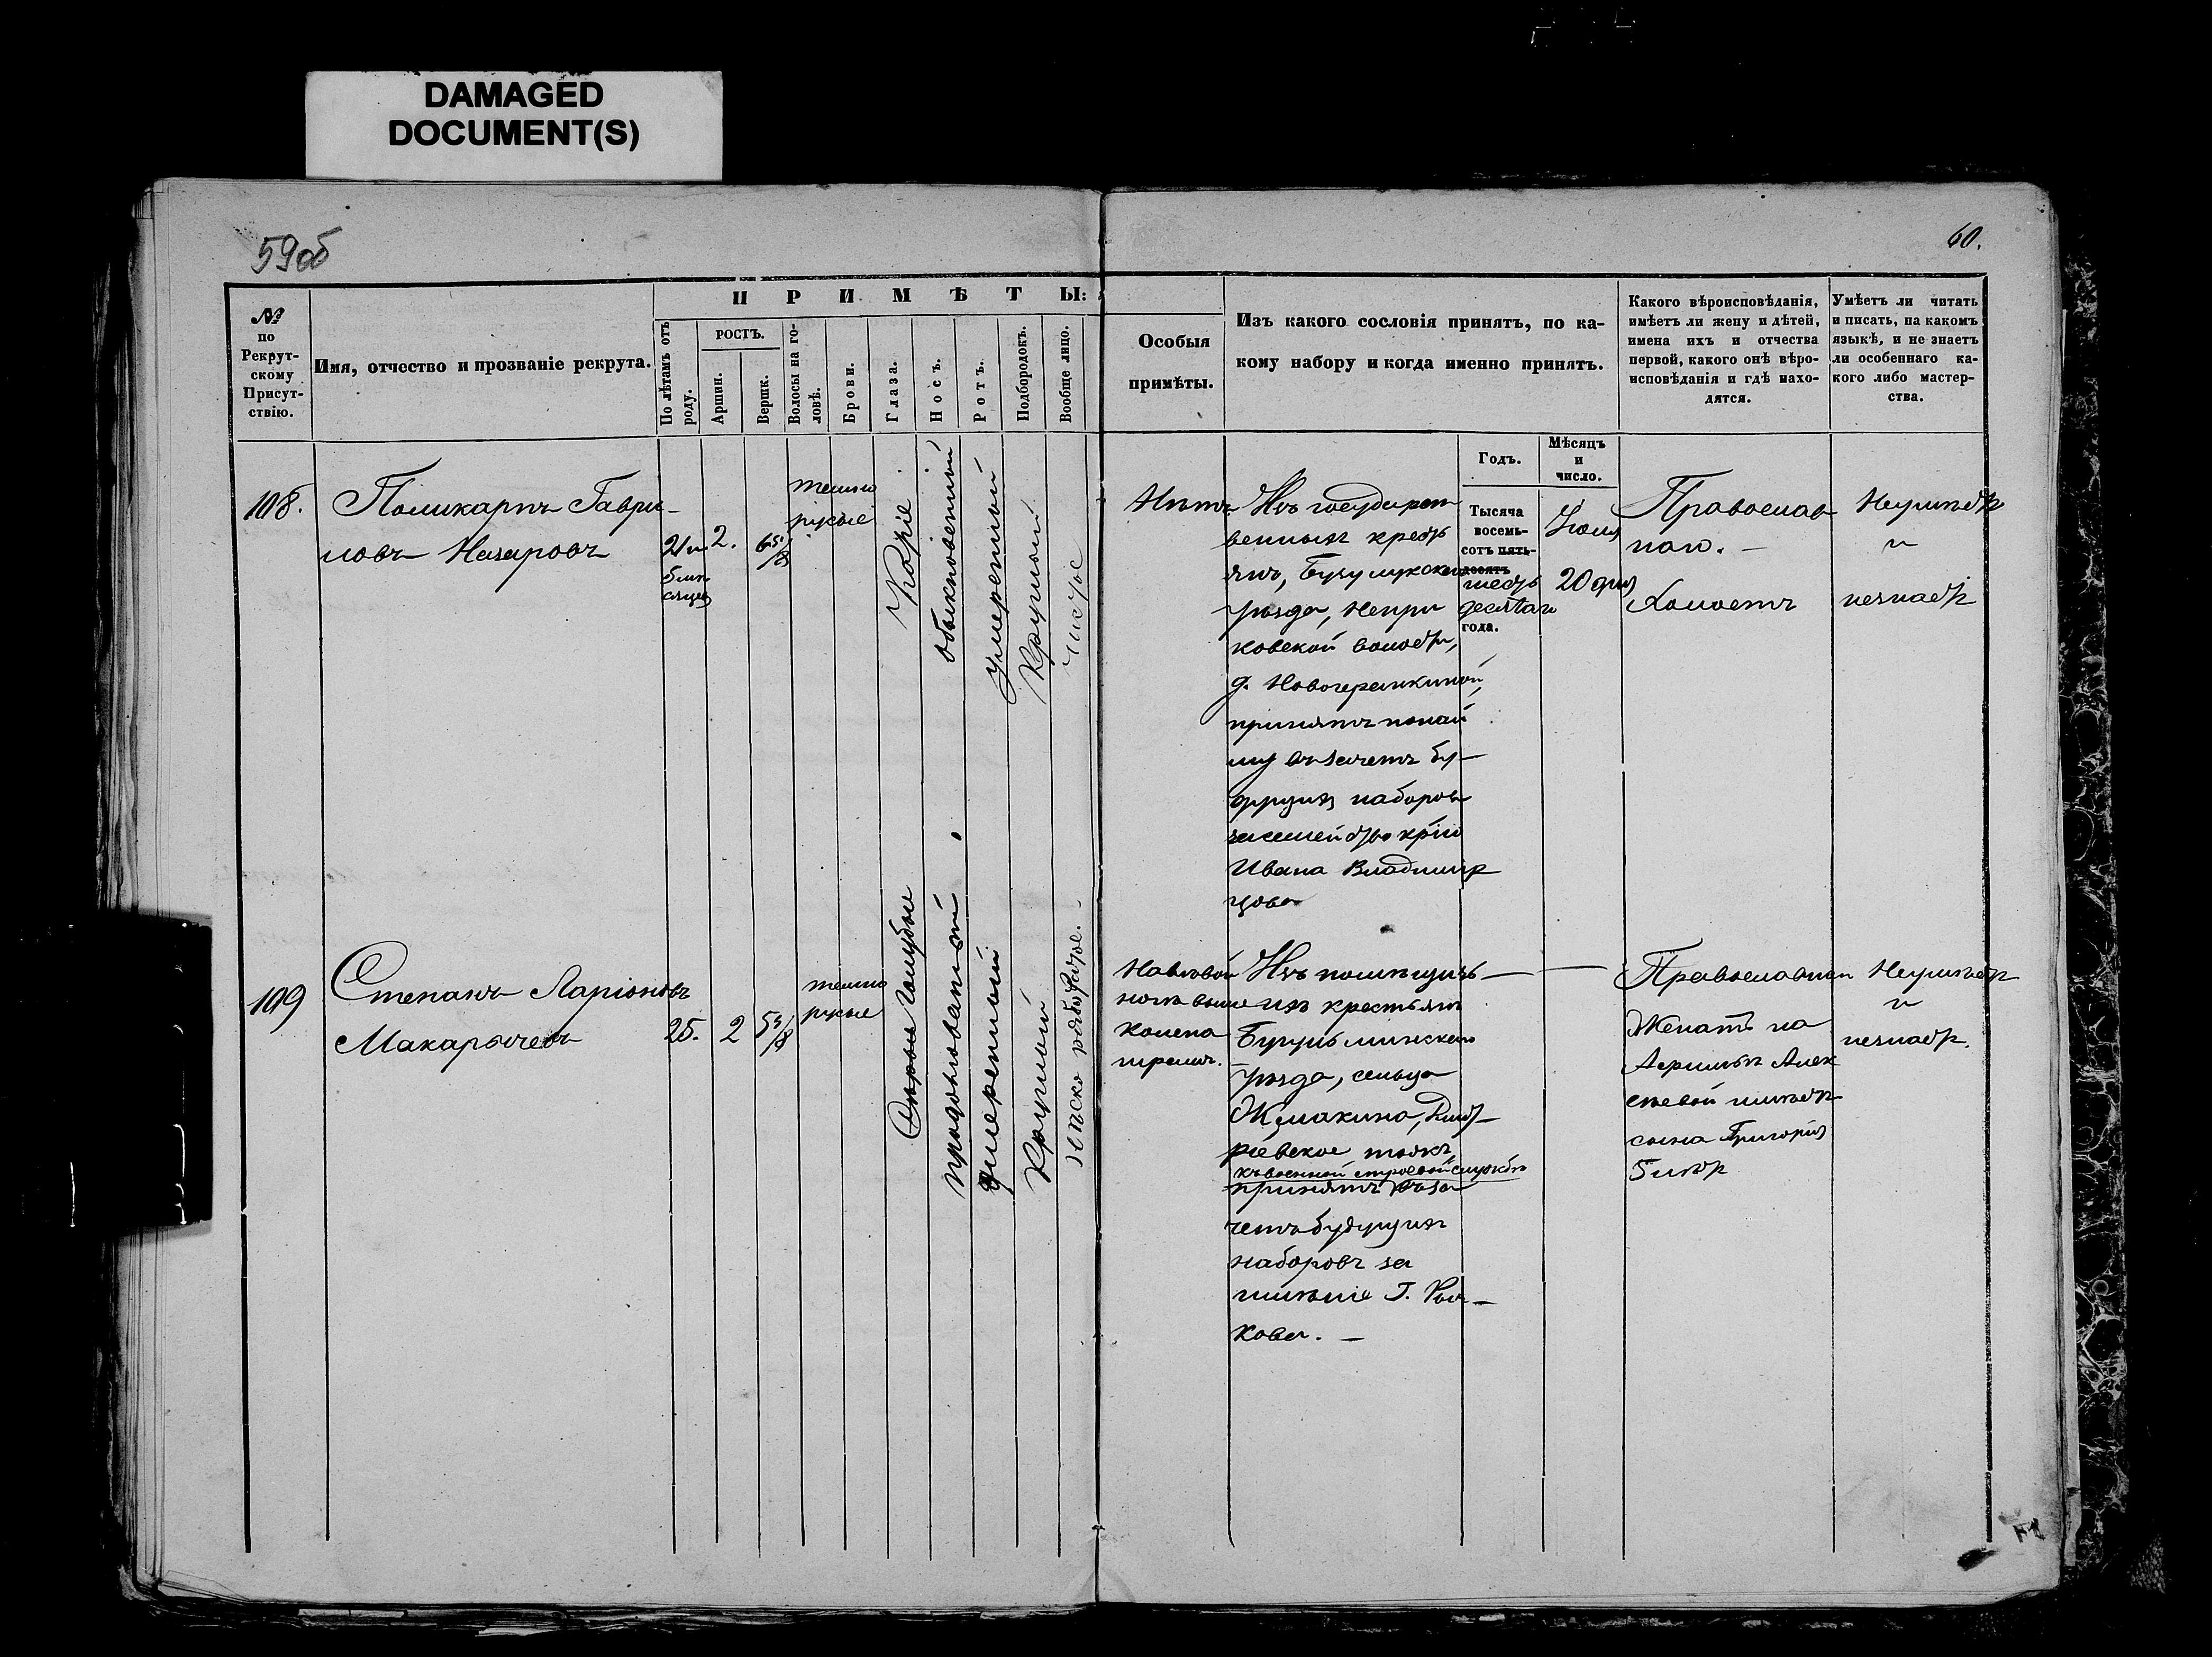 DAMAGED
DOCUMENT(S)
59об
60.
№
по
Рекрут-
скому
Присут-
ствію.
Имя, отчество и прозваніе рекрута.
ПРИМѢТЫ:
По лѣтамъ отъ
роду.
РОСТЪ.
Аршин.
Вершк.
Волосы на го-
ловѣ.
Брови.
Глаза.
Носъ.
Ротъ.
Подбородокъ.
Вообще лицо.
Особыя
примѣты.
Изъ какого сословія принятъ, по ка-
кому набору и когда именно принятъ.
Годъ.
Мѣсяцъ
и
число.
Какого вѣроисповѣданія,
имѣетъ ли жену и дѣтей,
имена ихъ и отчества
первой, какого онѣ вѣро-
исповѣданія и гдѣ нахо-
дятся.
Умѣетъ ли читать
и писать, на какомъ
языкѣ, и не знаетъ
ли особеннаго ка-
кого либо мастер-
ства.
108.
Поликарпъ Гаври-
ловъ Назаровъ
21 и
6 мѣ
сяцев
2.
6 5/8
темно
русые
Каріе
обыкновенный
умеренный
Круглый
чистое
Нѣтъ
Изъ государст
венныхъ кресть
янъ, Бузулукскаго
уѣзда,
волости,
д.
принятъ по най
му въ зачетъ бу-
дущихъ наборовъ
за семейство кр-на
Ивана Владимір
цова
Тысяча
восемь-
сотъ пять-
десятъ
шесть
десятаго
года.
Іюня
20 дня
Православ
наго. -
Холостъ
Неумѣетъ
и
незнаетъ
109
Степанъ Ларіоновъ
Макарычевъ
25.
2
5 5/8
темно
русые
Сѣрые голубые
продолговатый
умеренный
Круглый
рябоватое. -
На лѣвой
ногѣ выше
колена
шрамъ.
Изъ помѣщичь-
ихъ крестьянъ
Бугульминскаго
уѣзда, сельца
Жмакина, Дмит-
ріевское тожъ,
къ военной строевой службѣ
принятъ въ за
четъ будущихъ
наборовъ за
имѣніе Г. Рыч-
кова. -
Православнаго
Женатъ на
Алек
сѣевой имѣетъ
сына Григорія
5 лѣтъ
Неумѣетъ
и
незнаетъ.